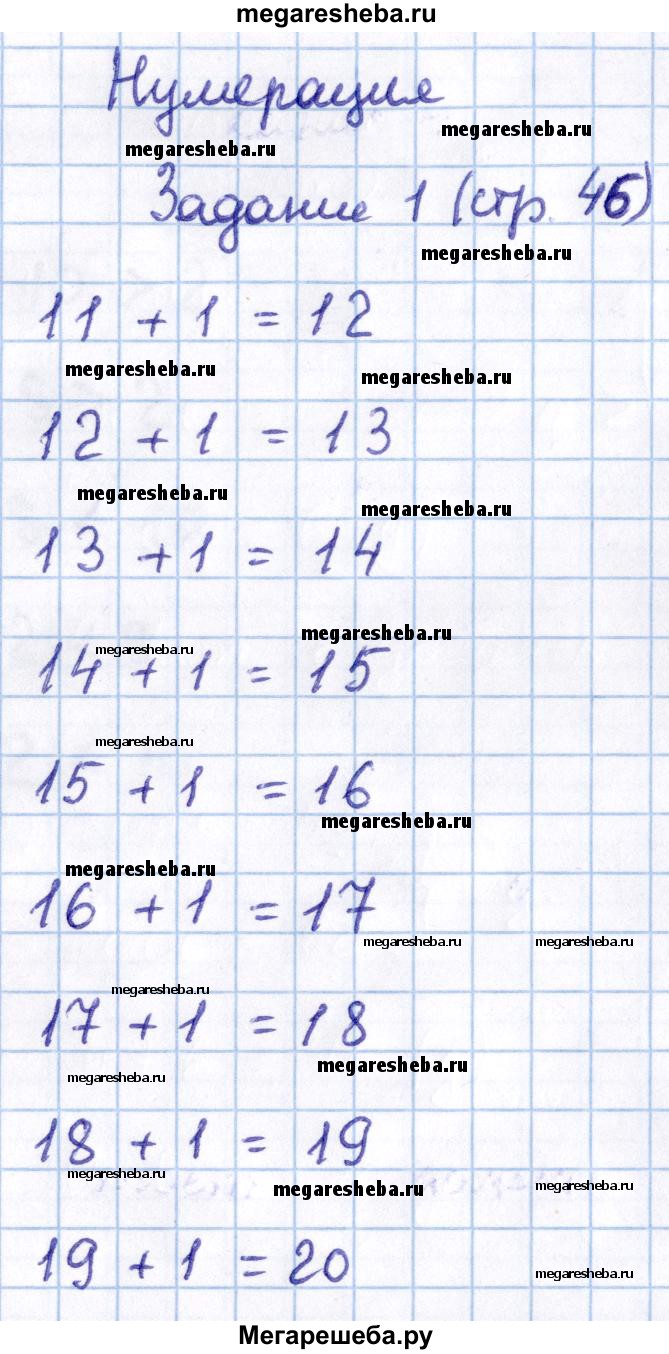 megaresheba.ru
Нумерация
megaresheba.ru
megaresheba.ru
Задание 1 (стр. 46)
megaresheba.ru
11 + 1 = 12
megaresheba.ru
megaresheba.ru
12 + 1 = 13
megaresheba.ru
megaresheba.ru
13 + 1 = 14
megaresheba.ru
megaresheba.ru
14 + 1 = 15
megaresheba.ru
15 + 1 = 16
megaresheba.ru
megaresheba.ru
16 + 1 = 17
megaresheba.ru megaresheba.ru
megaresheba.ru
17 + 1 = 18
megaresheba.ru
megaresheba.ru
18 + 1 = 19
megaresheba.ru
megaresheba.ru
megaresheba.ru
19 + 1 = 20
megaresheba.ru
Мегарешеба.ру